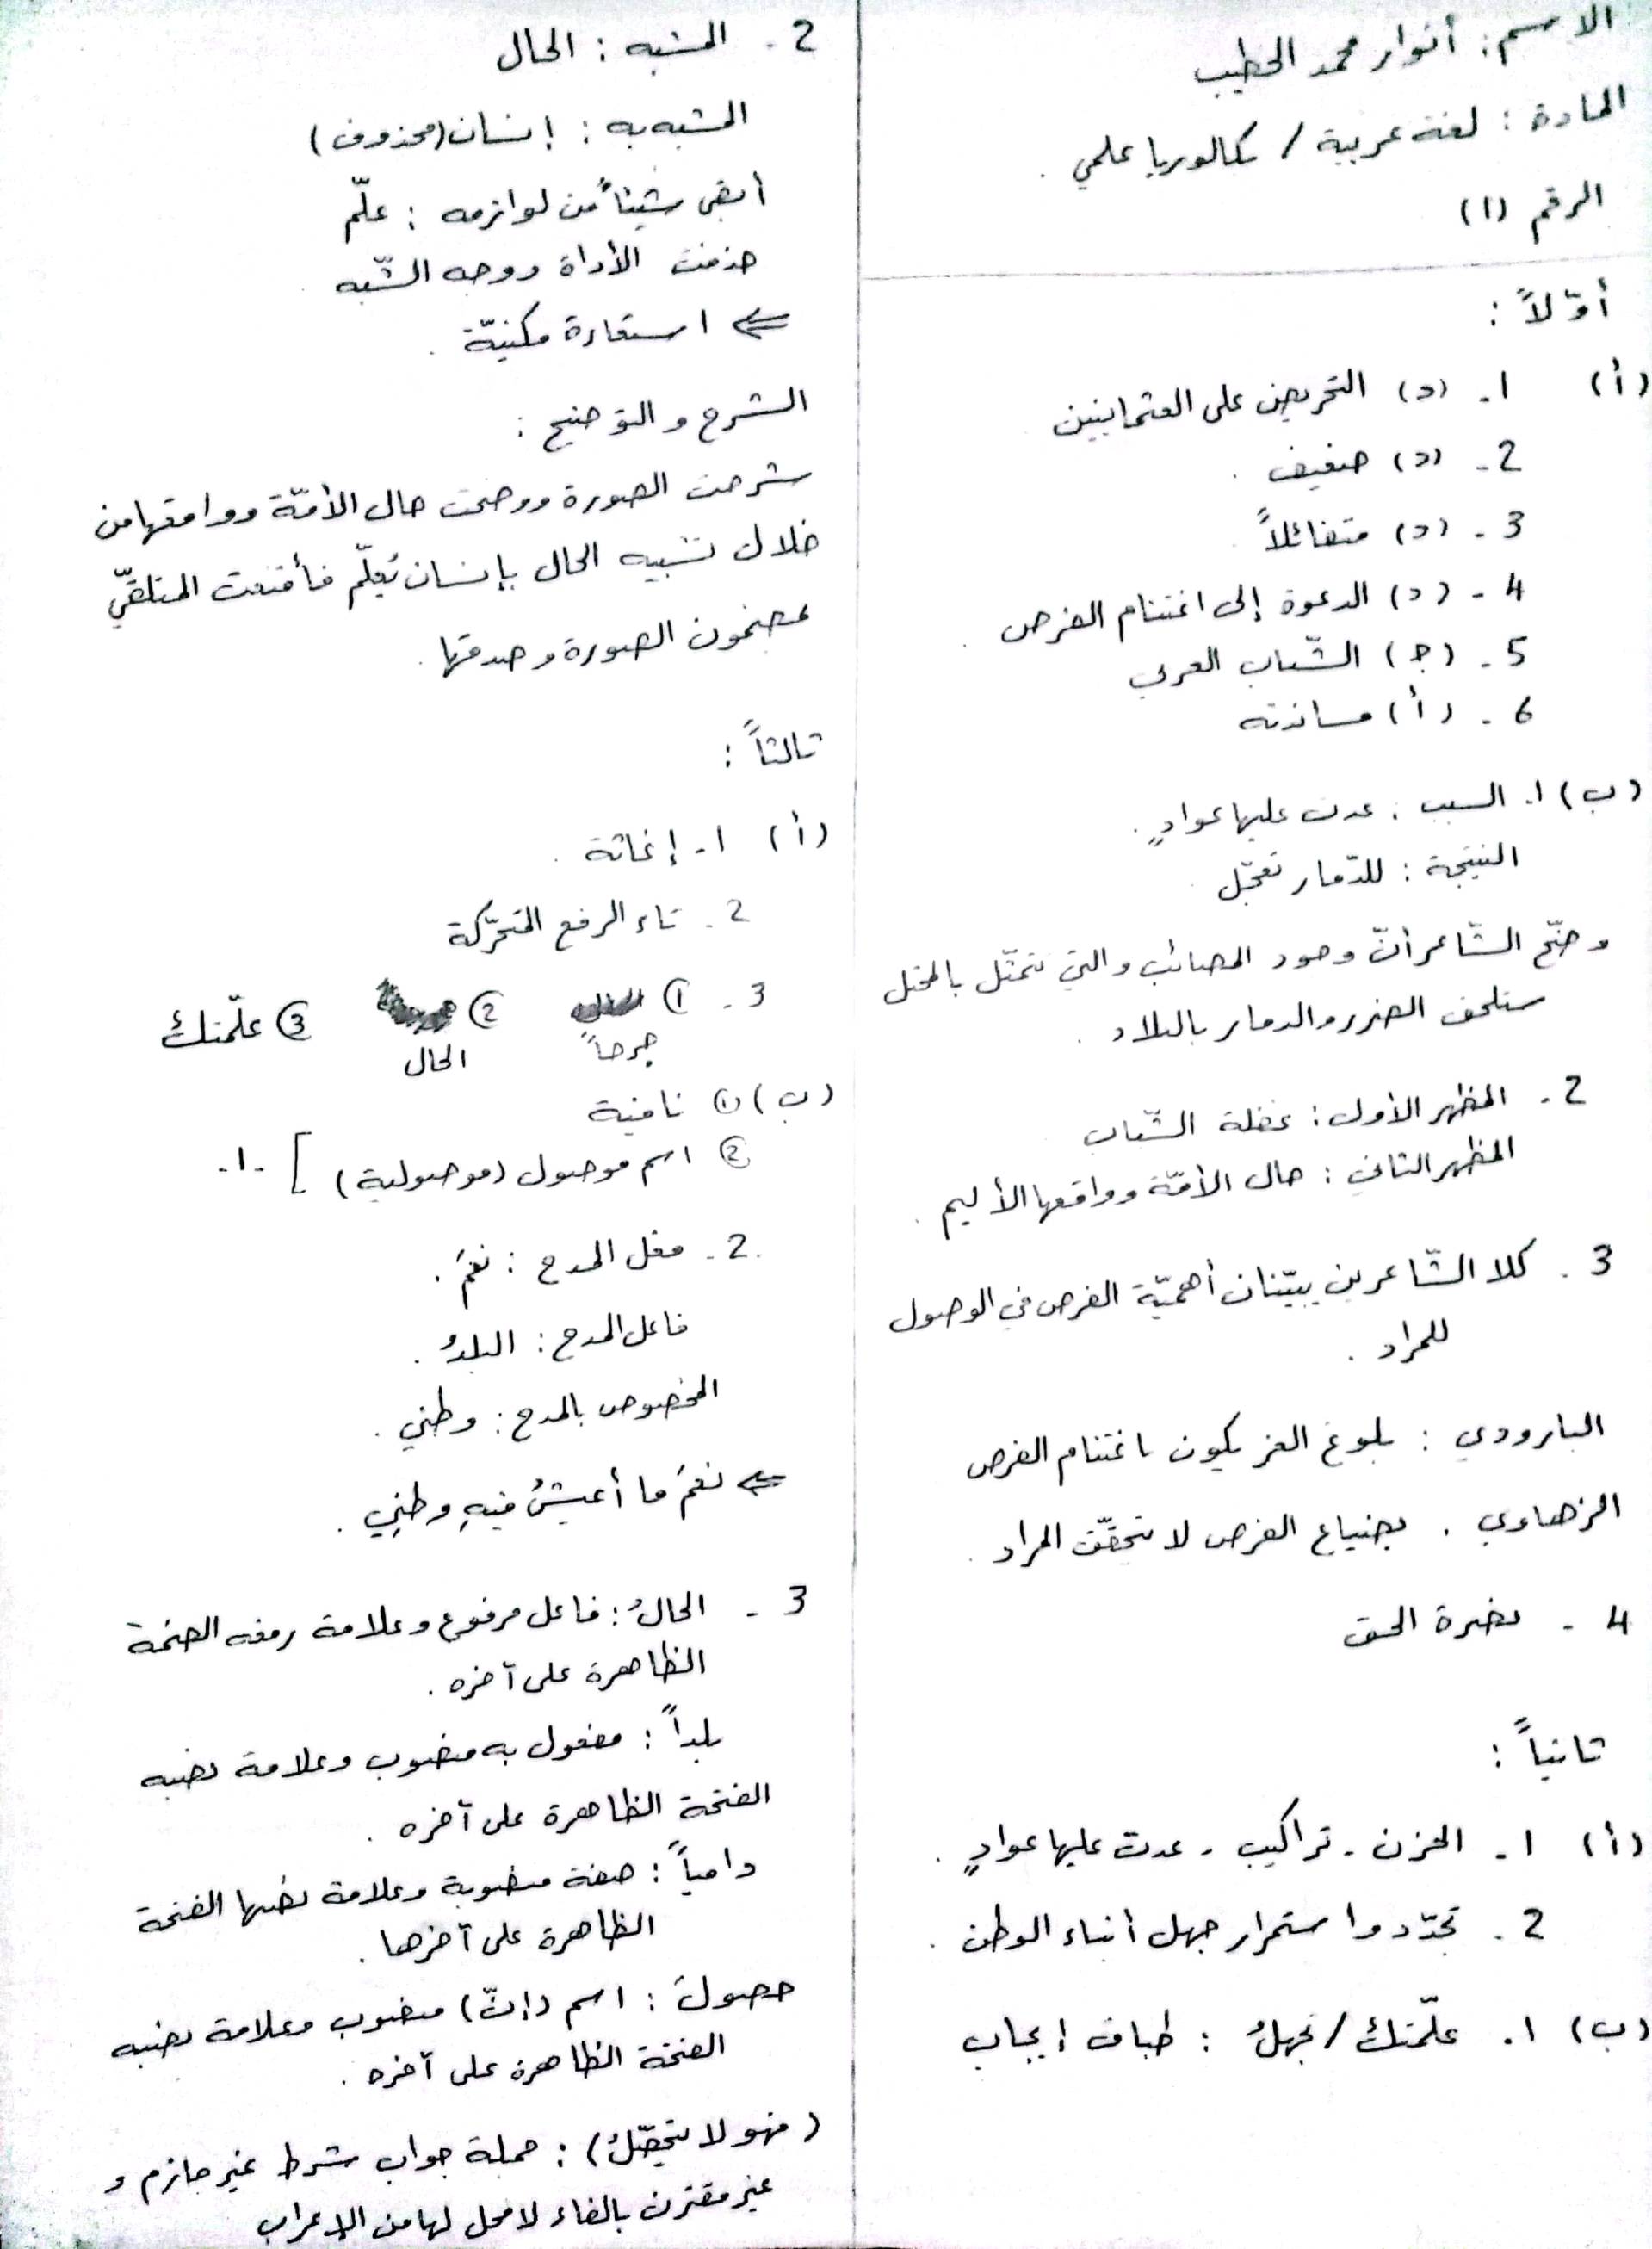 الاسم: أنوار محمد الخطيب
المادة: لغة عربية / بكالوريا علمي.
الرقم (١)
أوّلاً:
(أ) ١- (د) التحريض على العثمانيين
2- (د) ضعيف.
3- (د) متفائلاً
4- (د) الدعوة إلى اغتنام الفرص.
5- (ج) الشّباب العربي
6- (أ) مساندته
(ب) ١. السبب: عدت عليها عوادٍ.
النتيجة: للدّمار تعجّل.
وضّح الشّاعر أنّ وجود المصائب والتي تتمثّل بالمحتل
ستلحق الضرر والدمار بالبلاد.
2. المظهر الأول: غفلة الشّباب
المظهر الثاني: حال الأمّة وواقعها الأليم.
3. كلا الشّاعرين يبيّنان أهميّة الفرص في الوصول
للمراد.
البارودي: بلوغ العز يكون باغتنام الفرص
الزهاوي. بضياع الفرص لا يتحقّق المراد.
4- نضرة الحق
ثانياً:
(أ) ١- الحزن. تراكيب. عدت عليها عوادٍ.
2. تجدّد واستمرار جهل أبناء الوطن.
(ب) ١. علّمتك/تجهلُ: طباق إيجاب
2. المشبه: الحال
المشبه به: إنسان (محذوف)
أبقى شيئاً من لوازمه: علّم
حذفت الأداة ووجه الشّبه.
⇐ استعارة مكنيّة.
الشرح والتوضيح:
شرحت الصورة ووضحت حال الأمّة وواقعها من
خلال تشبيه الحال بإنسان يُعلّم فأقنعت المتلقّي
بمضمون الصورة وصدقها.
ثالثاً:
(أ) ١- إغاثة.
2. تاء الرفع المتحرّكة
3. ① ② ③ علّمتكَ
جرحاً الحال
(ب) ① نافية
② اسم موصول (موصولية) ] -١-
2. فعل المدح: نعمَ.
فاعل المدح: البلدُ.
المخصوص بالمدح: وطني.
⇐ نعمَ ما أعيشُ فيهِ وطنِي.
3- الحالُ: فاعل مرفوع وعلامة رفعه الضمة
الظاهرة على آخره.
بلداً: مفعول به منصوب وعلامة نصبه
الفتحة الظاهرة على آخره.
دامياً: صفة منصوبة وعلامة نصبها الفتحة
الظاهرة على آخرها.
حصولَ: اسم (إنّ) منصوب وعلامة نصبه
الفتحة الظاهرة على آخره.
(فهو لا يتحصّلُ): جملة جواب شرط غير جازم و
غير مقترن بالفاء لا محل لها من الإعراب